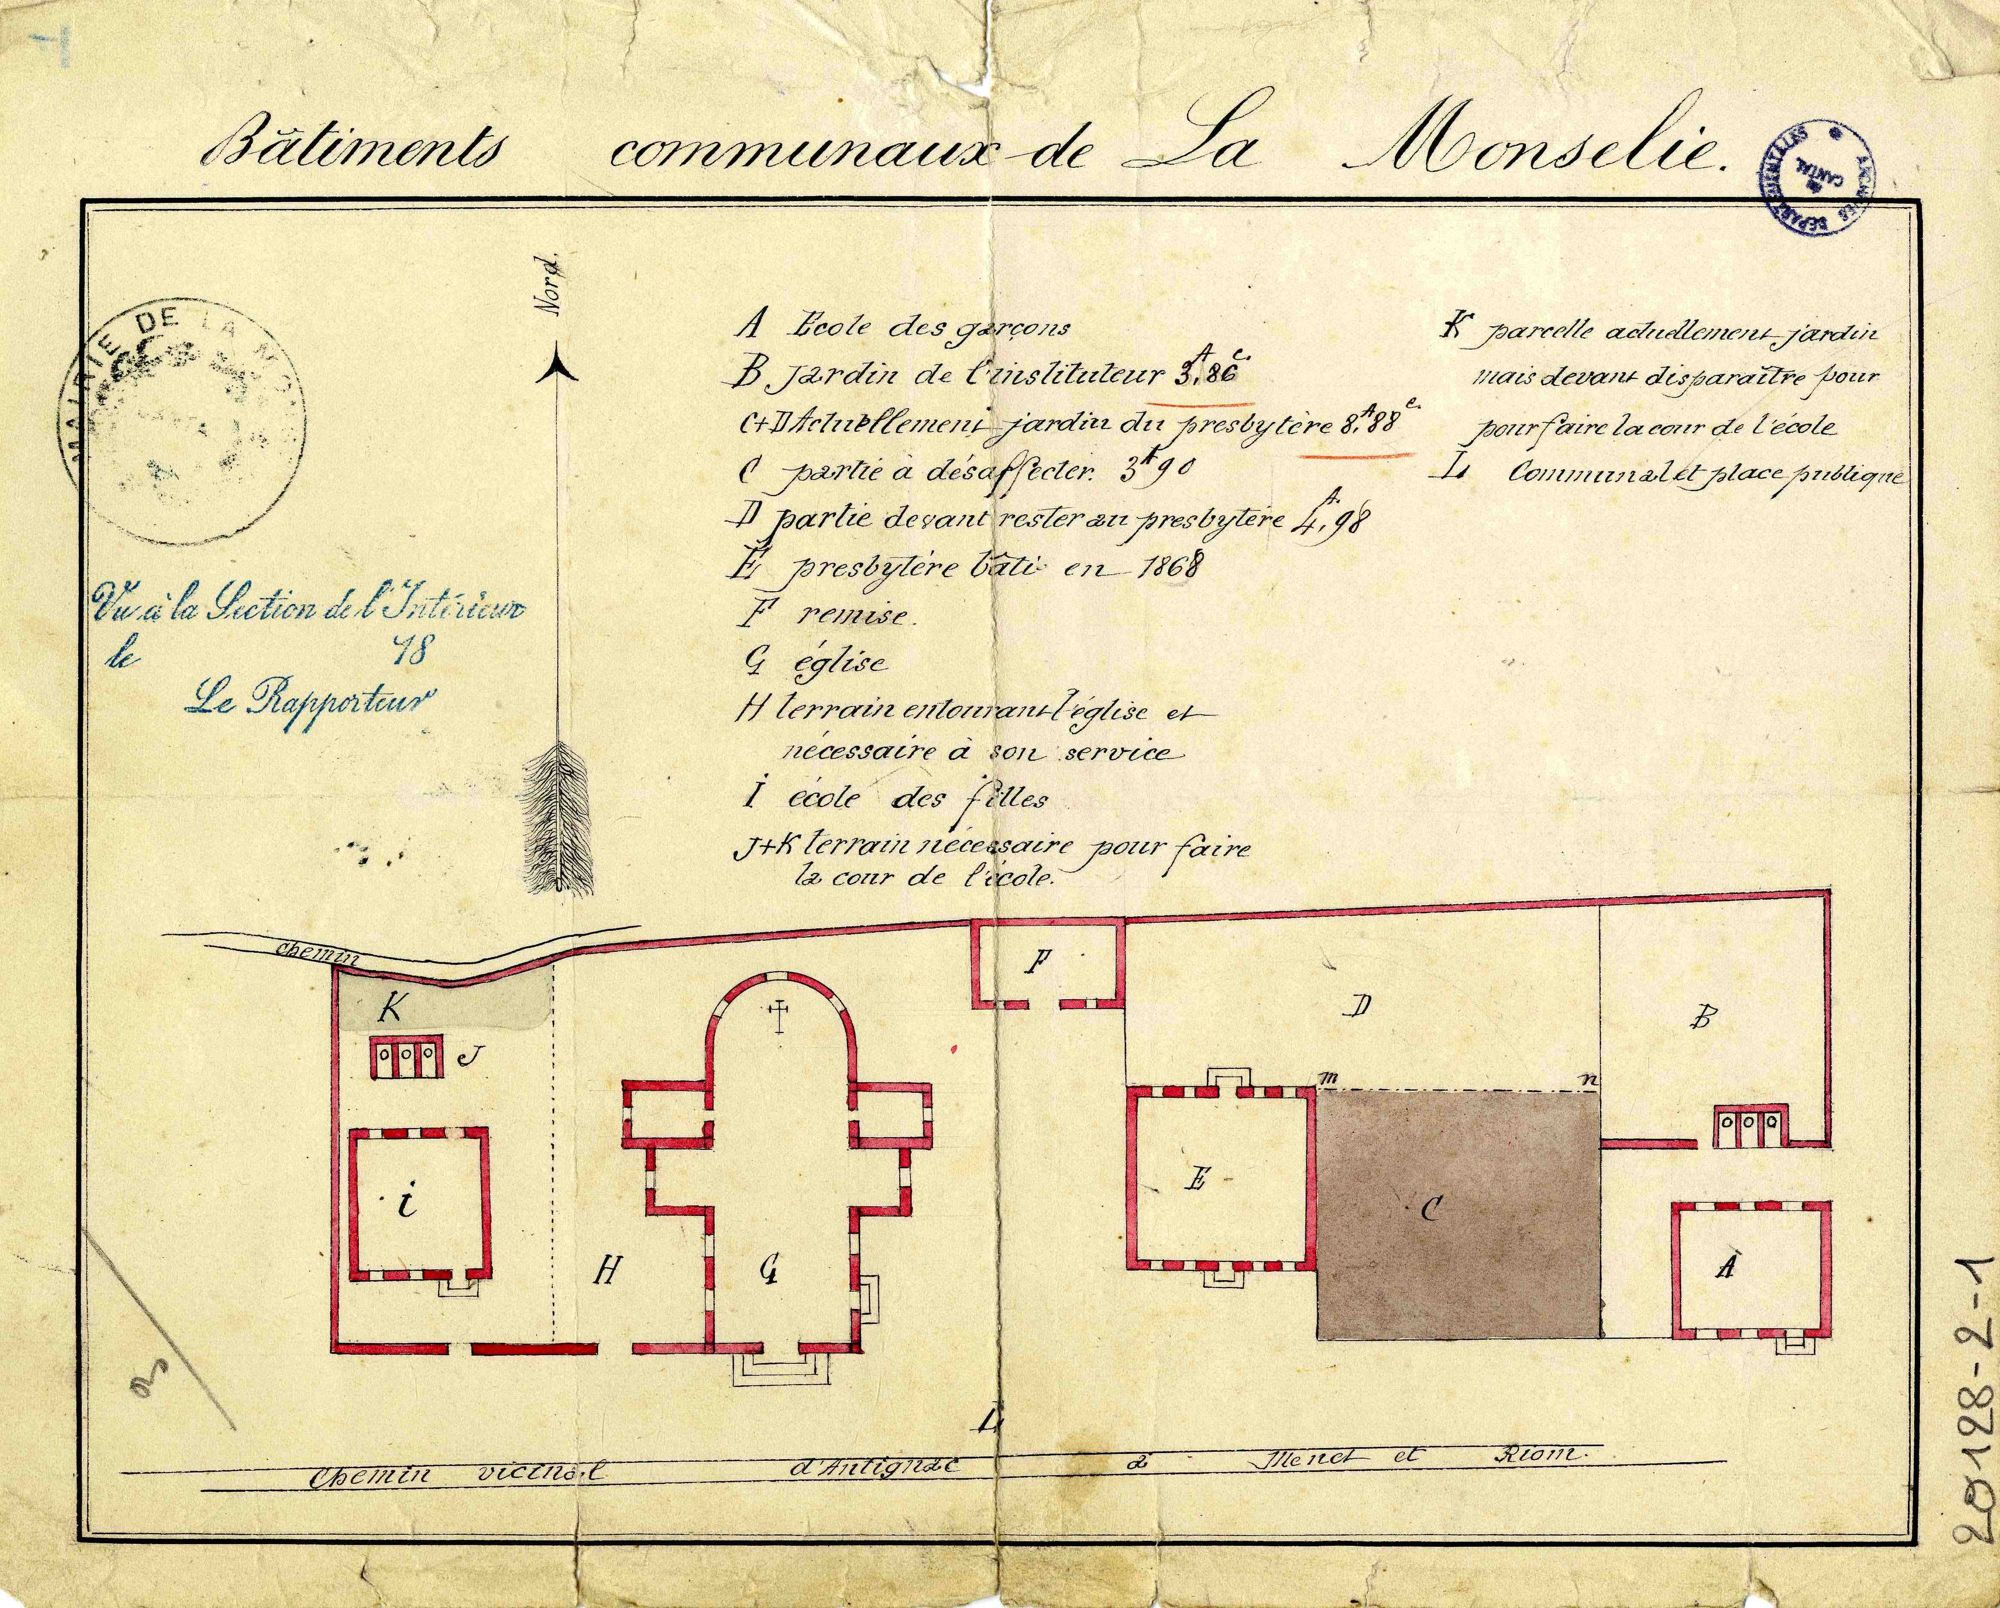 Bâtiments communaux de La Monselie.
ARCHIVES DÉPARTEMENTALES
DU CANTAL
MAIRIE DE LA
Nord.
A Ecole des garçons
B Jardin de l'instituteur 3A,86c.
C+D Actuellement jardin du presbytère 8A,88c.
C partie à désaffecter. 3A90
D partie devant rester au presbytère 4A,98
E presbytère bâti en 1868
F remise.
G église
H terrain entourant l'église et
nécessaire à son service
I école des filles
J+K terrain nécessaire pour faire
la cour de l'école.
K parcelle actuellement jardin
mais devant disparaître pour
pour faire la cour de l'école
L Communal et place publique
Vu à la Section de l'Intérieur
le 18
Le Rapporteur
chemin
K
J
i
H
G
F
D
B
m
n
E
C
A
L
Chemin vicinal d'Antignac à Menet et Riom.
20128-2-1